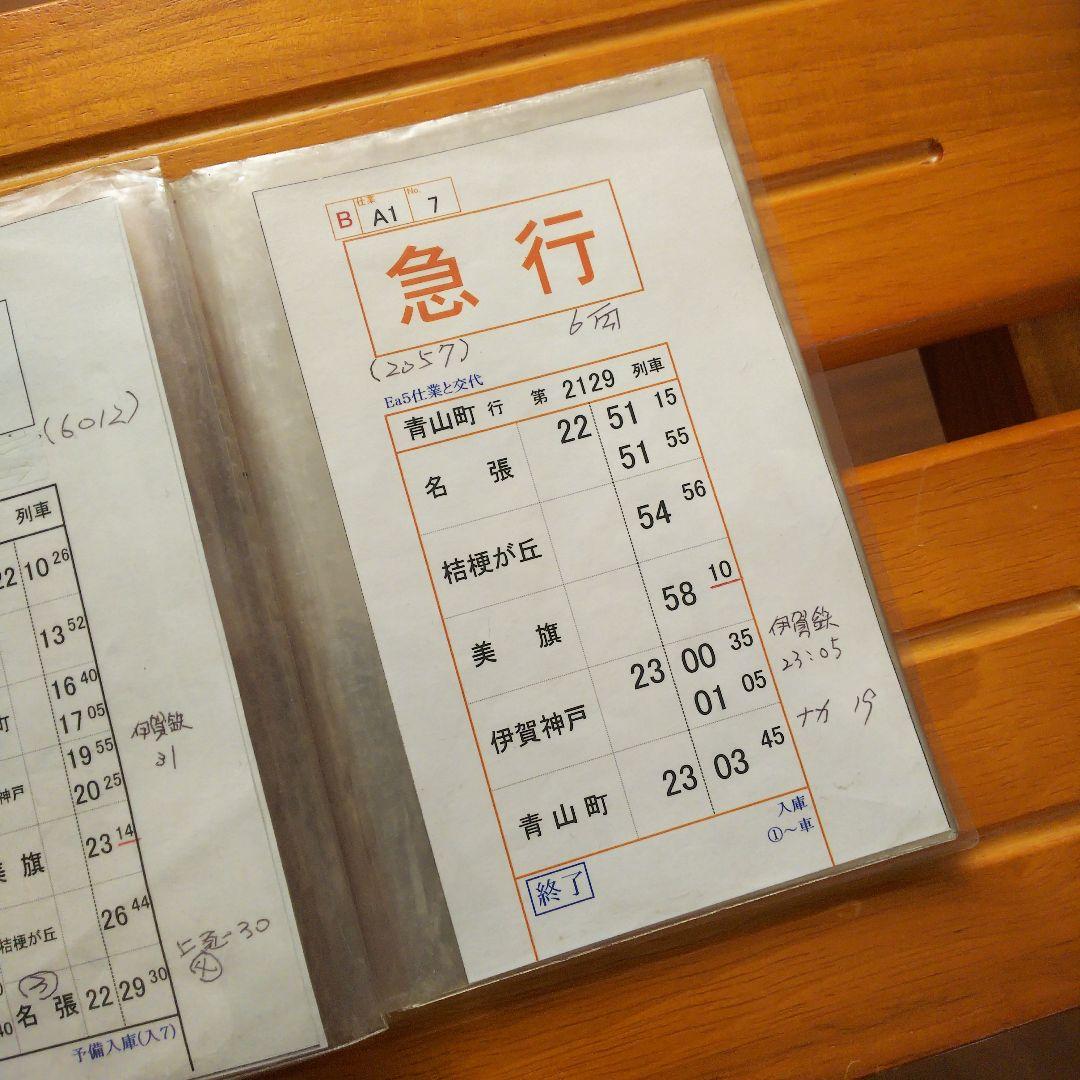 (6012)
列車
22 10 26
13 52
16 40
17 05
19 55
神戸 20 25
伊賀鉄
31
美旗 23 14
桔梗が丘 26 44
③
名張 22 29 30
予備入庫(入7)
B 仕業 A1 No. 7
急行
6両
(2057)
Ea5仕業と交代
青山町 行 第 2129 列車
名張 22 51 15
51 55
桔梗が丘 54 56
美旗 58 10
伊賀神戸 23 00 35
01 05
青山町 23 03 45
伊賀鉄
23:05
ナカ 19
入庫
①~車
終了